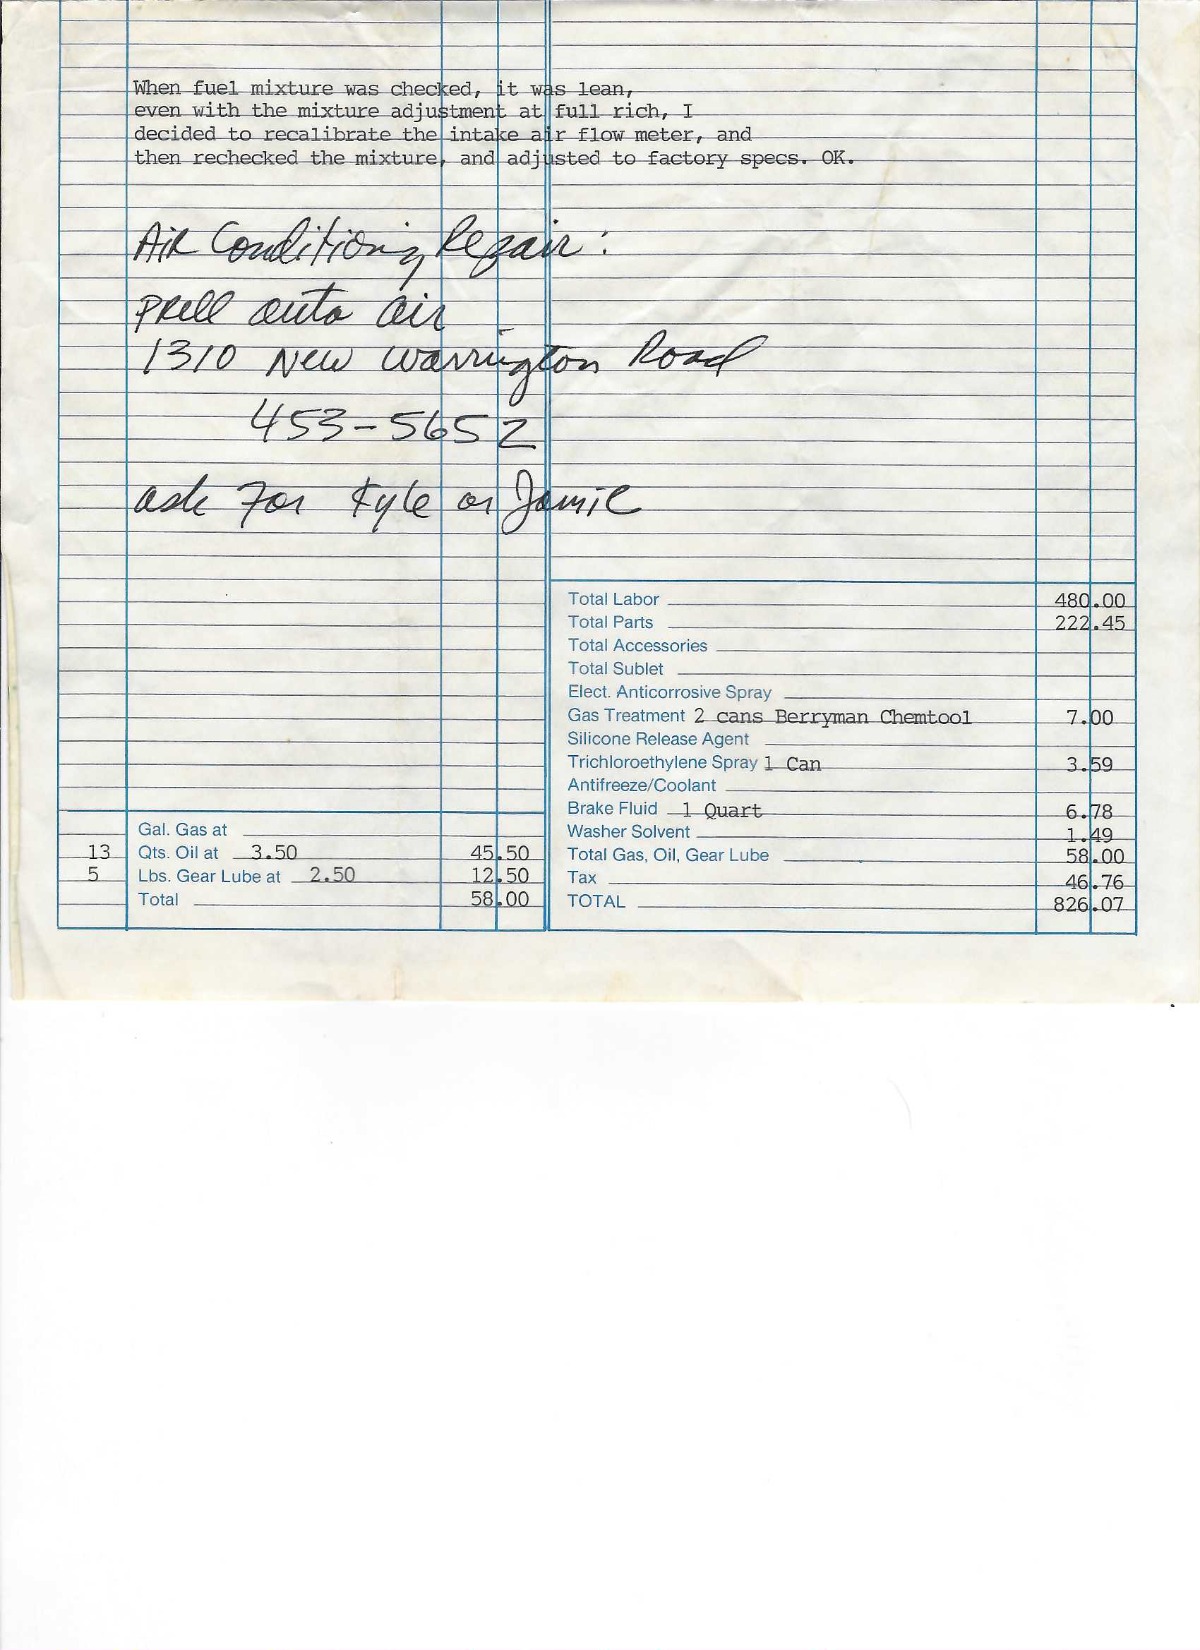 When fuel mixture was checked, it was lean,
even with the mixture adjustment at full rich, I
decided to recalibrate the intake air flow meter, and
then rechecked the mixture, and adjusted to factory specs. OK.
Air Conditioning Repair:
Prell auto air
1310 New Warrington Road
453-5652
ask for Kyle or Jamie
Total Labor 480.00
Total Parts 222.45
Total Accessories
Total Sublet
Elect. Anticorrosive Spray
Gas Treatment 2 cans Berryman Chemtool 7.00
Silicone Release Agent
Trichloroethylene Spray 1 Can 3.59
Antifreeze/Coolant
Brake Fluid 1 Quart 6.78
Washer Solvent 1.49
Total Gas, Oil, Gear Lube 58.00
Tax 46.76
TOTAL 826.07
Gal. Gas at
13 Qts. Oil at 3.50 45.50
5 Lbs. Gear Lube at 2.50 12.50
Total 58.00